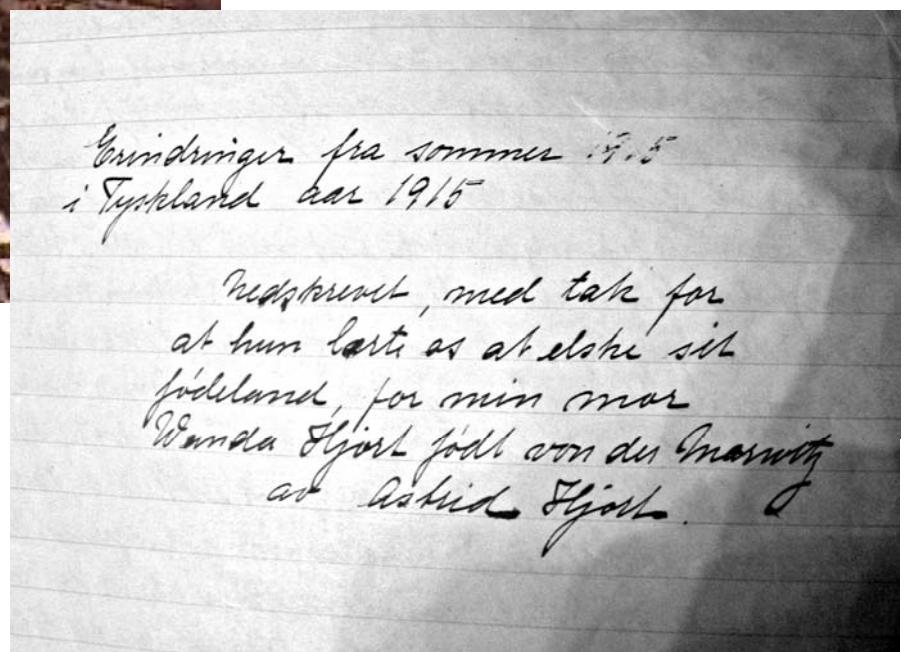 Erindringer fra sommer 1915
i Tyskland aar 1915
Nedskrevet, med tak for
at hun lærte os at elske sit
fødeland, for min mor
Wanda Hjort født von der Marwitz
av Astrid Hjort.